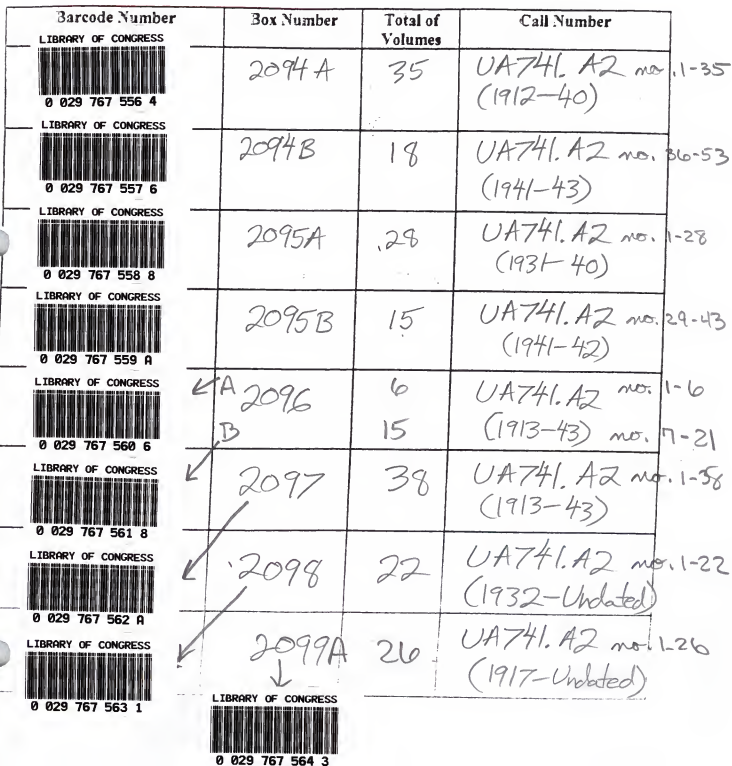 Barcode Number Box Number Total of Volumes Call Number
LIBRARY OF CONGRESS
0 029 767 556 4
2094 A 35 UA741. A2 no. 1-35
(1912-40)
LIBRARY OF CONGRESS
0 029 767 557 6
2094B 18 UA741. A2 no. 36-53
(1941-43)
LIBRARY OF CONGRESS
0 029 767 558 8
2095A 28 UA741. A2 no. 1-28
(1931-40)
LIBRARY OF CONGRESS
0 029 767 559 A
2095B 15 UA741. A2 no. 29-43
(1941-42)
LIBRARY OF CONGRESS
0 029 767 560 6
A 2096 6 UA741. A2 no. 1-6
B 15 (1913-43) no. 7-21
LIBRARY OF CONGRESS
0 029 767 561 8
2097 38 UA741. A2 no. 1-38
(1913-43)
LIBRARY OF CONGRESS
0 029 767 562 A
2098 22 UA741. A2 no. 1-22
(1932-Undated)
LIBRARY OF CONGRESS
0 029 767 563 1
2099A 26 UA741. A2 no. 1-26
(1917-Undated)
LIBRARY OF CONGRESS
0 029 767 564 3